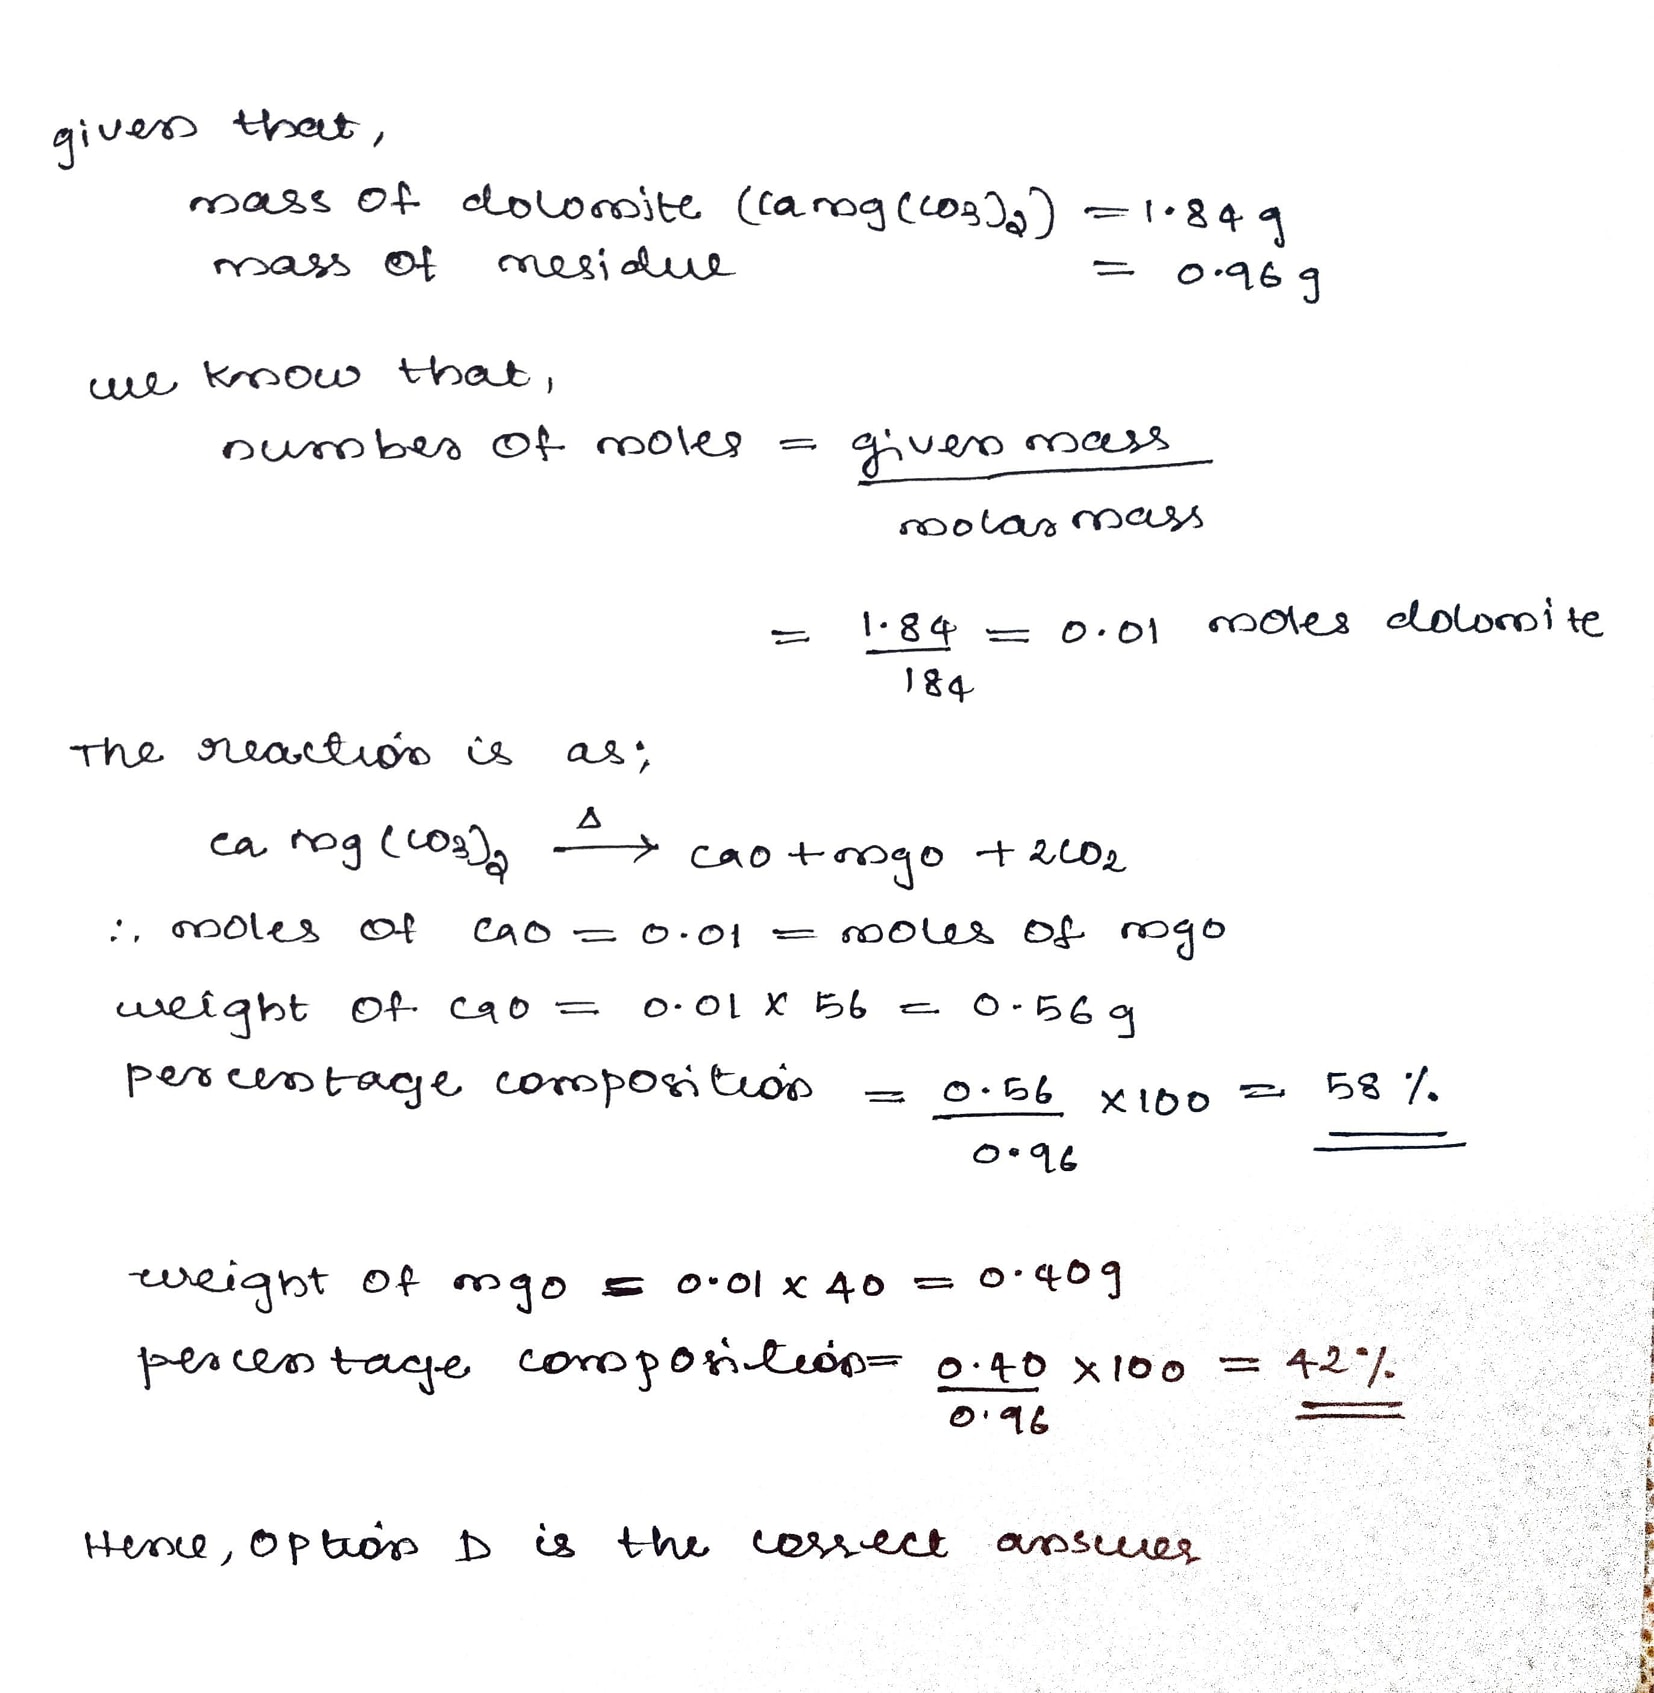 given that,
mass of dolomite (CaMg(CO3)2) = 1.84 g
mass of residue = 0.96 g
we know that,
number of moles = given mass
molar mass
= 1.84 = 0.01 moles dolomite
184
The reaction is as;
Ca Mg (CO3)2 Δ→ CaO + MgO + 2CO2
∴ moles of CaO = 0.01 = moles of MgO
weight of CaO = 0.01 x 56 = 0.56 g
percentage composition = 0.56 x 100 = 58 %
0.96
weight of MgO = 0.01 x 40 = 0.40 g
percentage composition = 0.40 x 100 = 42 %
0.96
Hence, option D is the correct answer